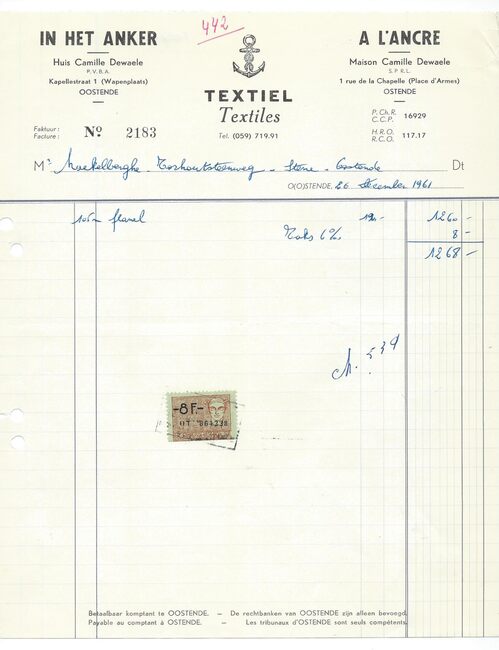 442
IN HET ANKER
Huis Camille Dewaele
P.V.B.A.
Kapellestraat 1 (Wapenplaats)
OOSTENDE
TEXTIEL
Textiles
Tel. (059) 719.91
A L'ANCRE
Maison Camille Dewaele
S.P.R.L.
1 rue de la Chapelle (Place d'Armes)
OSTENDE
P.Ch.R.
C.C.P. 16929
H.R.O.
R.C.O. 117.17
Faktuur :
Facture : No 2183
Mr Torhoutsteenweg - Stene - Oostende Dt
O(O)STENDE, 26 December 1961
105m flanel 12- 1260 -
Taks 6‰ 8 -
1268 -
539
-8F.-
Betaalbaar komptant te OOSTENDE. — De rechtbanken van OOSTENDE zijn alleen bevoegd.
Payable au comptant à OSTENDE. — Les tribunaux d'OSTENDE sont seuls compétents.